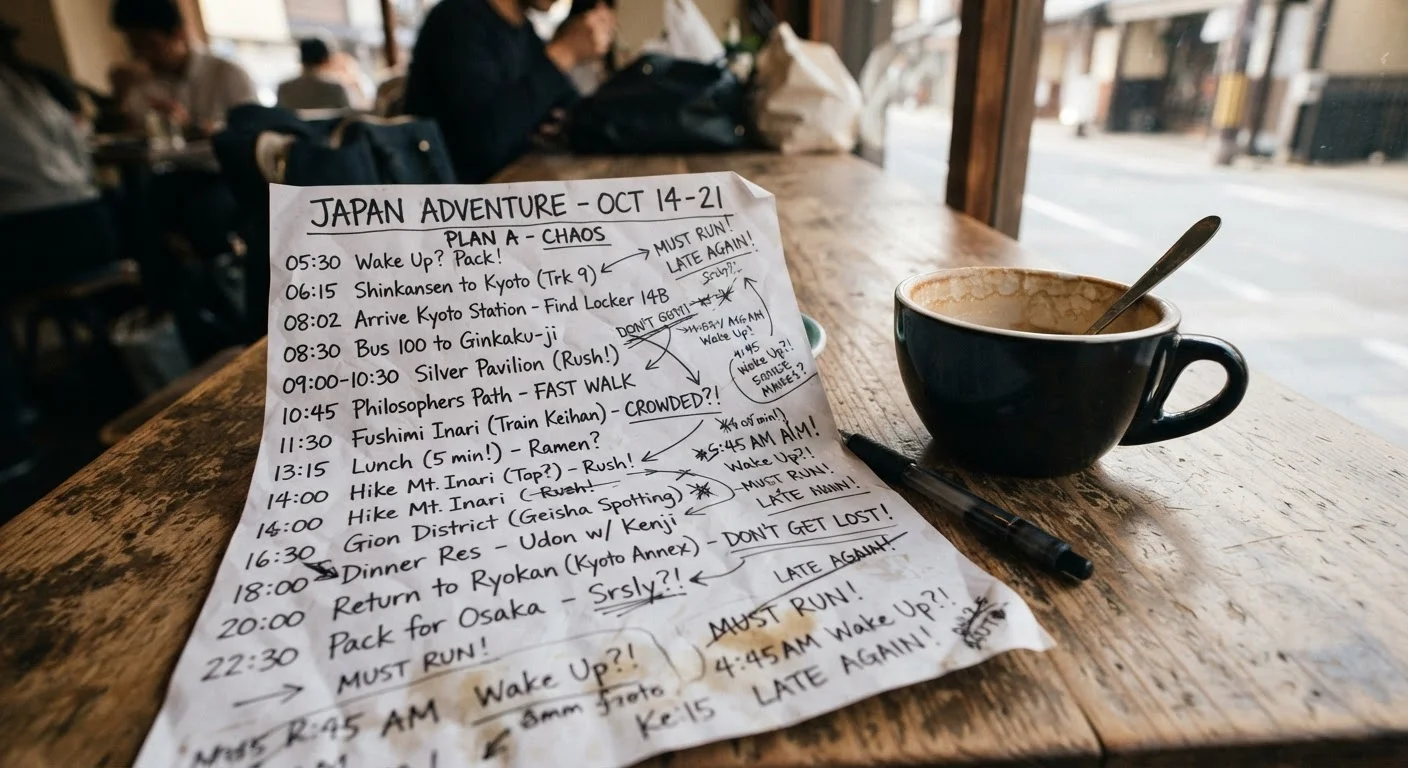 JAPAN ADVENTURE - OCT 14-21
PLAN A - CHAOS
05:30 Wake Up? Pack!
MUST RUN!
LATE AGAIN!
Srsly?!
06:15 Shinkansen to Kyoto (Trk 9)
08:02 Arrive Kyoto Station - Find Locker 14B
DON'T
Wake Up?
4:45
Wake Up?!
08:30 Bus 100 to Ginkaku-ji
09:00-10:30 Silver Pavilion (Rush!)
10:45 Philosophers Path - FAST WALK
11:30 Fushimi Inari (Train Keihan) - CROWDED?!
13:15 Lunch (5 min!) - Ramen?
min!)
5:45 AM AIM!
Wake Up?!
MUST RUN!
LATE
14:00 Hike Mt. Inari (Top?) - Rush!
14:00 Hike Mt. Inari (Rush!
16:30 Gion District (Geisha Spotting)
18:00 Dinner Res - Udon w/ Kenji
20:00 Return to Ryokan (Kyoto Annex) - DON'T GET LOST!
22:30 Pack for Osaka - Srsly?!
LATE AGAIN!
MUST RUN!
MUST RUN!
4:45 AM Wake Up?!
LATE AGAIN!
45 AM Wake Up?!